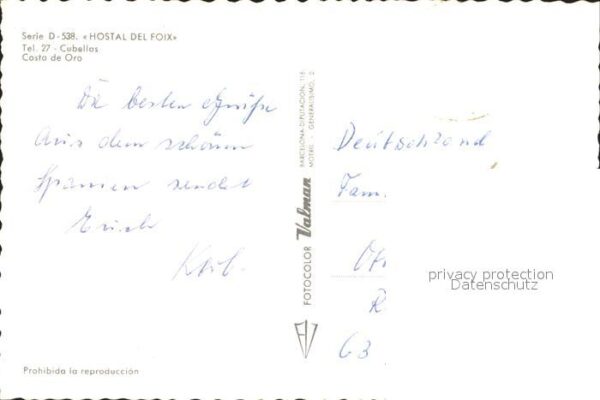 Serie D-538. «HOSTAL DEL FOIX»
Tel. 27 - Cubellas
Costa de Oro
Die besten Grüße
Aus dem schönen
Spanien sendet
Erich
Karl.
FOTOCOLOR Valman
BARCELONA-DIPUTACION, 116
MOTRIL - GENERALISIMO, 2
Deutschland
Fam.
R
63
privacy protection
Datenschutz
Prohibida la reproducción